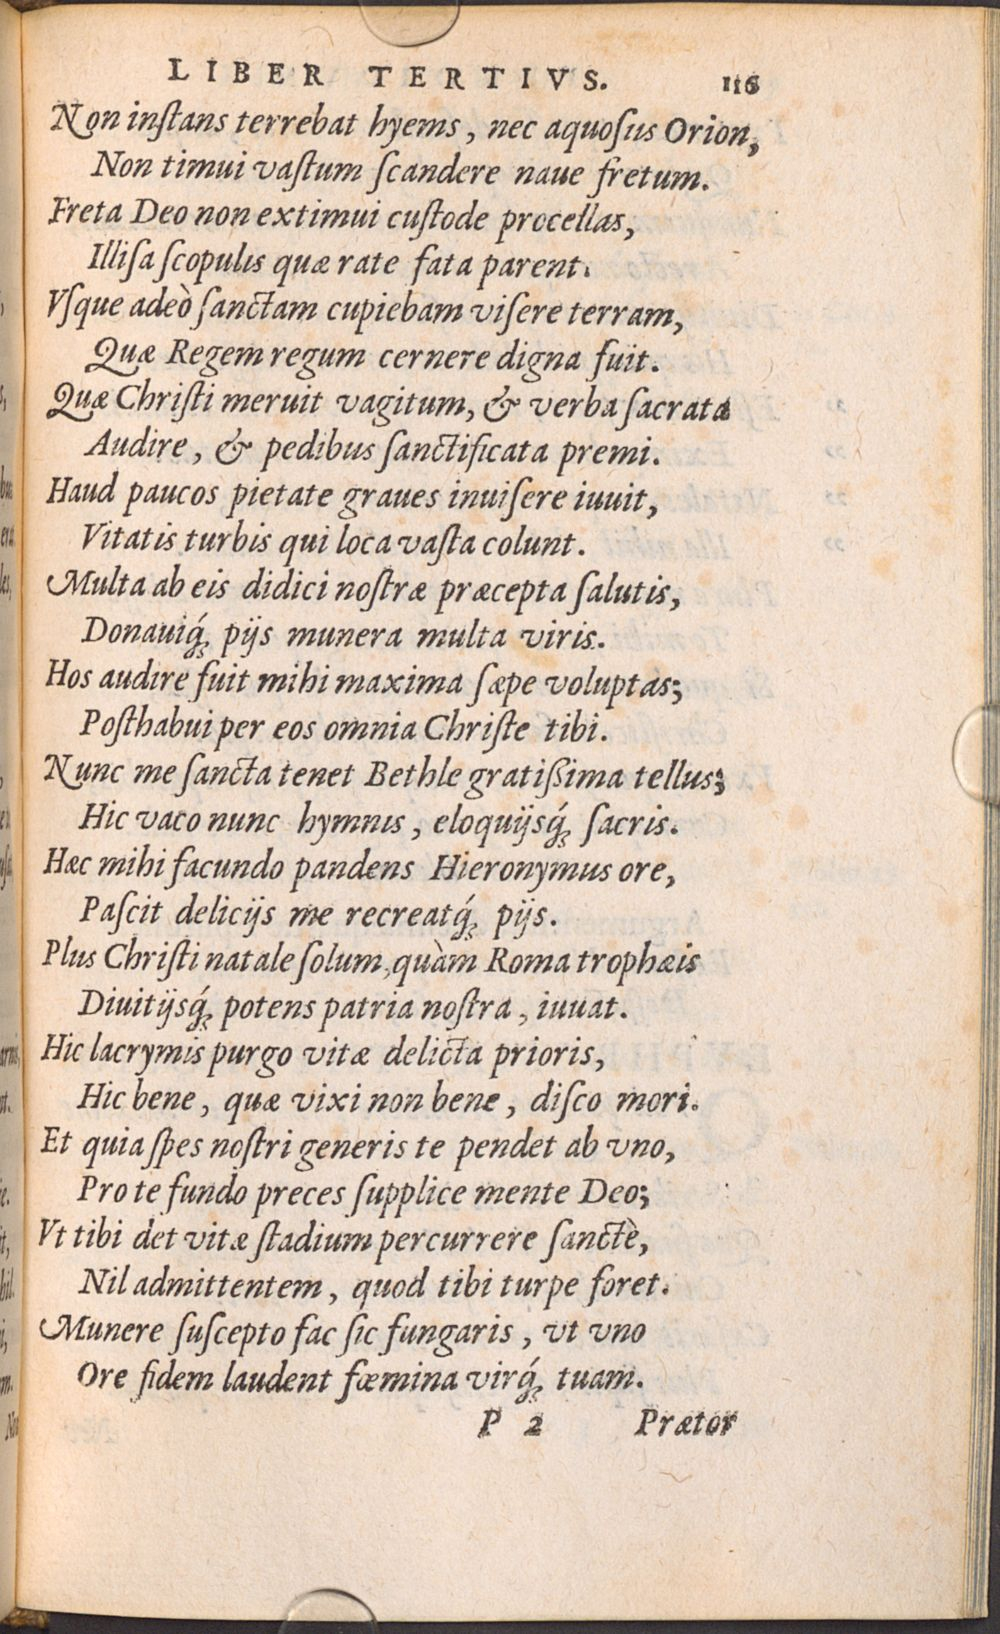 LIBER TERTIVS. 116
Non inſtans terrebat hyems, nec aquoſus Orion,
Non timui vaſtum ſcandere naue fretum.
Freta Deo non extimui cuſtode procellas,
Illiſa ſcopulis quæ rate fata parent.
Vſque adeò ſanctam cupiebam viſere terram,
Quæ Regem regum cernere digna fuit.
Quæ Chriſti meruit vagitum, & verba ſacrata
Audire, & pedibus ſanctificata premi.
Haud paucos pietate graues inuiſere iuuit,
Vitatis turbis qui loca vaſta colunt.
Multa ab eis didici noſtræ præcepta ſalutis,
Donauiq́; pijs munera multa viris.
Hos audire fuit mihi maxima ſæpe voluptas;
Poſthabui per eos omnia Chriſte tibi.
Nunc me ſancta tenet Bethle gratißima tellus;
Hic vaco nunc hymnis, eloquijsq́; ſacris.
Hæc mihi facundo pandens Hieronymus ore,
Paſcit delicijs me recreatq́; pijs.
Plus Chriſti natale ſolum, quàm Roma trophæis
Diuitijsq́; potens patria noſtra, iuuat.
Hic lacrymis purgo vitæ delicta prioris,
Hic bene, quæ vixi non bene, diſco mori.
Et quia ſpes noſtri generis te pendet ab vno,
Pro te fundo preces ſupplice mente Deo;
Vt tibi det vitæ ſtadium percurrere ſanctè,
Nil admittentem, quod tibi turpe foret.
Munere ſuſcepto fac ſic fungaris, vt vno
Ore fidem laudent fœmina virq́; tuam.
P 2 Prætor